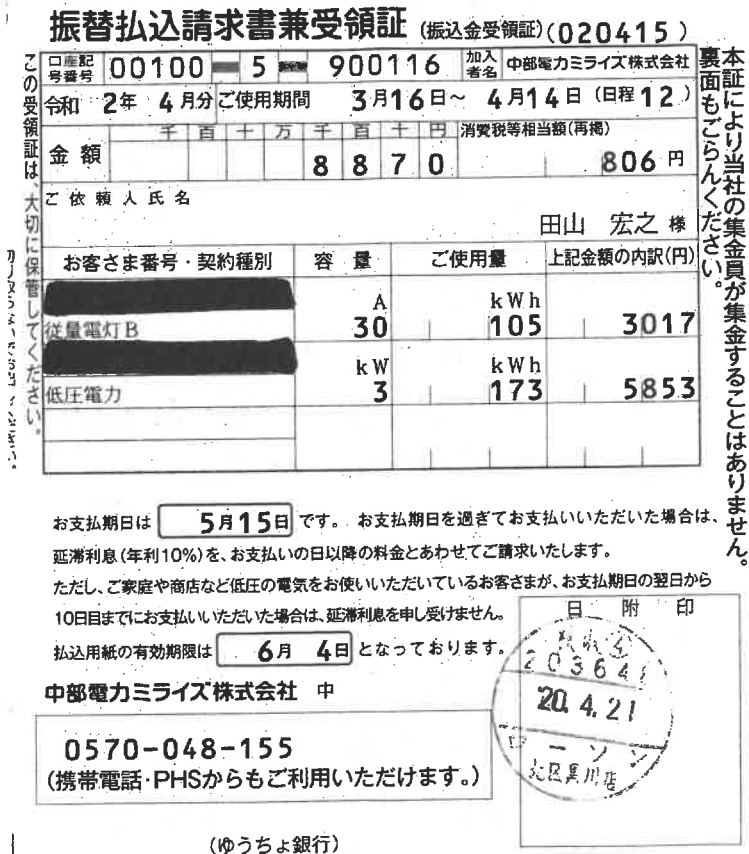 振替払込請求書兼受領証 (振込金受領証) (020415)
口座記号番号 00100 5 900116 加入者名 中部電力ミライズ株式会社
令和 2年 4月分 ご使用期間 3月16日~ 4月14日 (日程12)
金額 千百十万千百十円 8870 消費税等相当額(再掲) 806円
ご依頼人氏名
田山 宏之 様
お客さま番号・契約種別 容量 ご使用量 上記金額の内訳(円)
A kWh
従量電灯B 30 105 3017
kW kWh
低圧電力 3 173 5853
お支払期日は 5月15日 です。 お支払期日を過ぎてお支払いいただいた場合は、
延滞利息(年利10%)を、お支払いの日以降の料金とあわせてご請求いたします。
ただし、ご家庭や商店など低圧の電気をお使いいただいているお客さまが、お支払期日の翌日から
10日目までにお支払いいただいた場合は、延滞利息を申し受けません。
払込用紙の有効期限は 6月 4日 となっております。
中部電力ミライズ株式会社 中
0570-048-155
(携帯電話・PHSからもご利用いただけます。)
(ゆうちょ銀行)
日附印
203641
20.4.21
ローソン
北区黒川店
この受領証は、大切に保管してください。
本証により当社の集金員が集金することはありません。
裏面もごらんください。